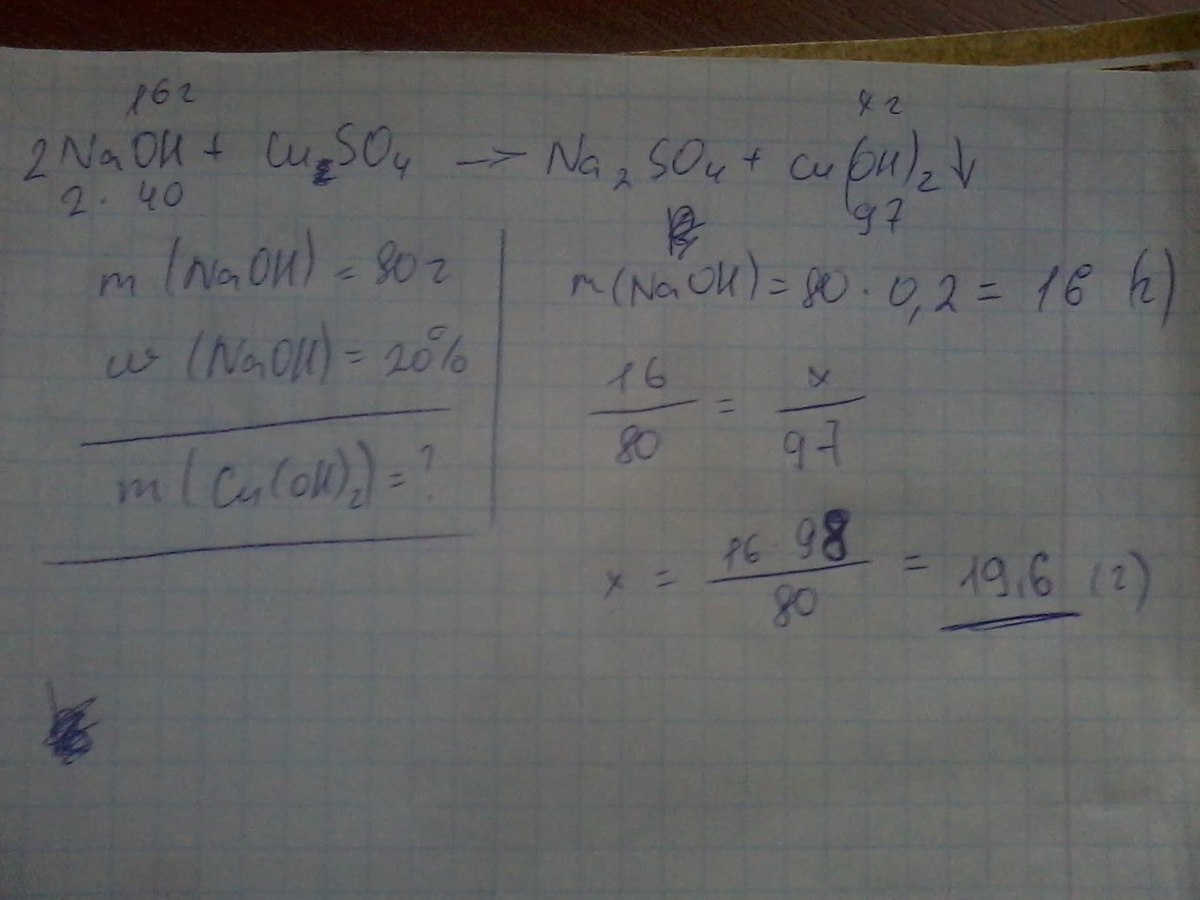 16г
xг
2NaOH + CuSO₄ → Na₂SO₄ + Cu(OH)₂↓
2·40
97
m(NaOH) = 80г
w(NaOH) = 20%
m(Cu(OH)₂) = ?
m(NaOH) = 80·0,2 = 16 (г)
16/80 = x/97
x = 16·98/80 = 19,6 (г)